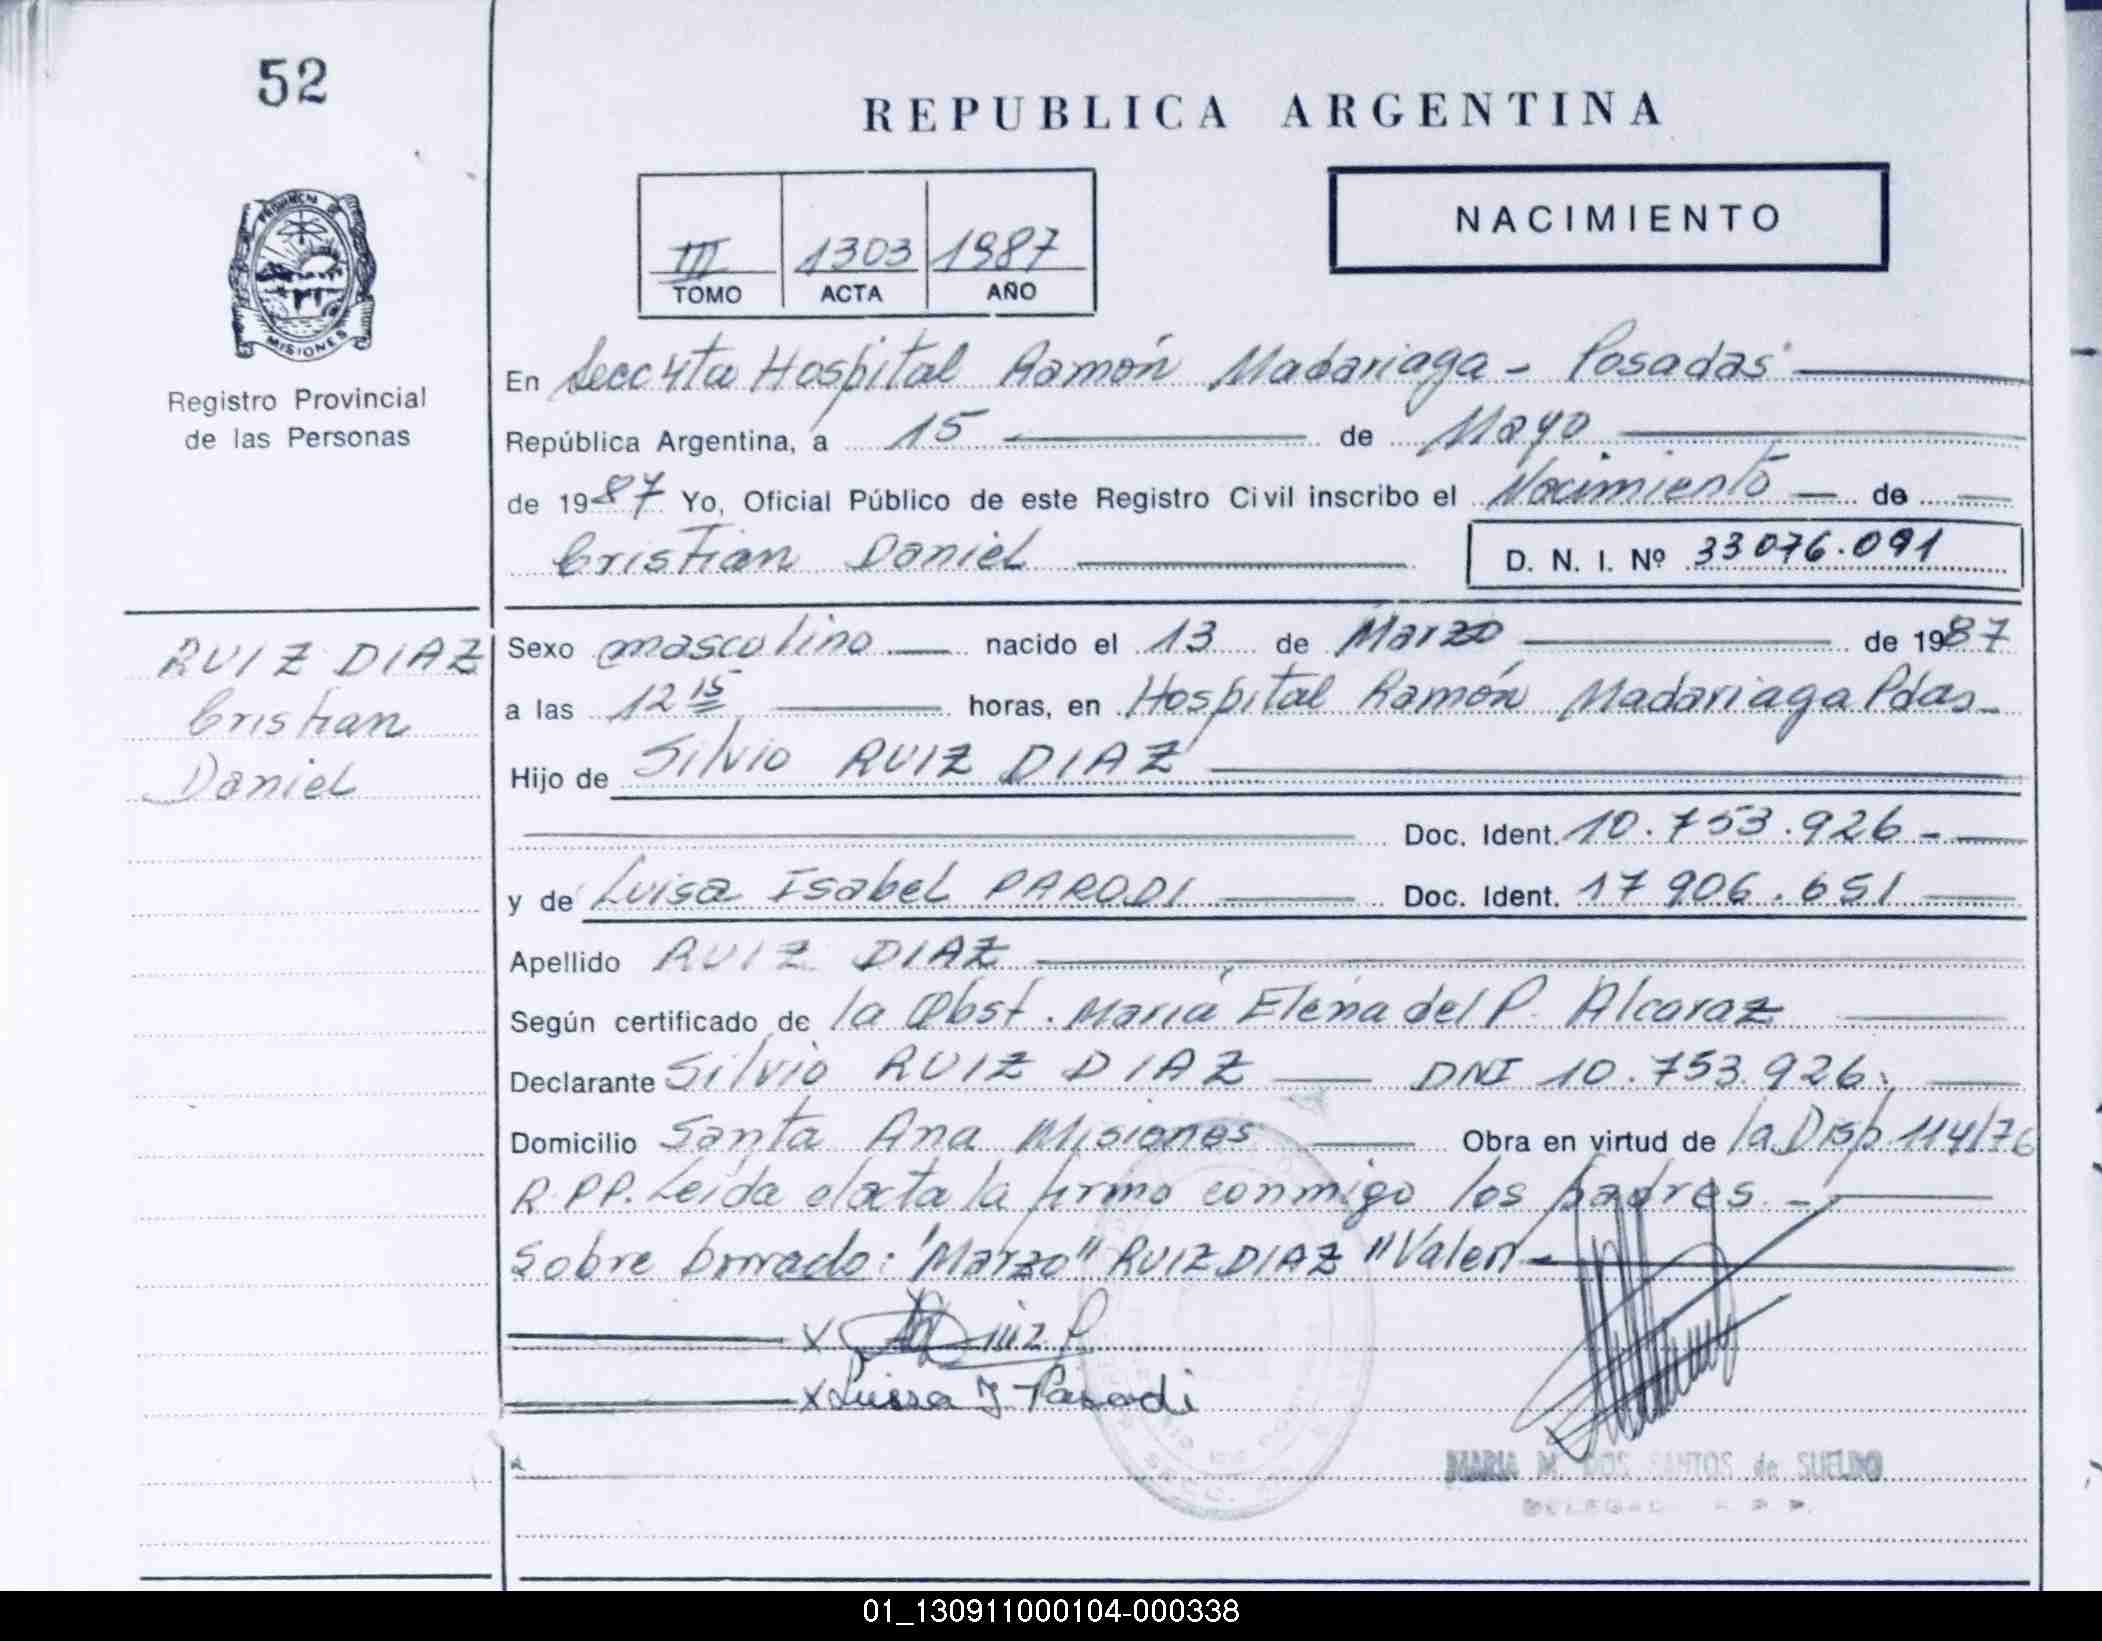 52
REPUBLICA ARGENTINA
NACIMIENTO
III 1303 1987
TOMO ACTA AÑO
PROVINCIA DE
MISIONES
Registro Provincial
de las Personas
En Secc 4ta Hospital Ramón Madariaga - Posadas
República Argentina, a 15 de Mayo
de 1987 Yo, Oficial Público de este Registro Civil inscribo el Nacimiento de
Cristian Daniel D. N. I. Nº 33 076.091
RUIZ DIAZ
Cristian
Daniel
Sexo masculino nacido el 13 de Marzo de 1987
a las 12 15 horas, en Hospital Ramón Madariaga Pdas
Hijo de Silvio RUIZ DIAZ
Doc. Ident. 10.753.926-
y de Luisa Isabel PARODI Doc. Ident. 17 906.651
Apellido RUIZ DIAZ
Según certificado de la Obst. María Elena del P. Alcaraz
Declarante Silvio RUIZ DIAZ DNI 10.753.926.
Domicilio Santa Ana Misiones Obra en virtud de la Disp 114/76
R.PP. Leída el acta la firma conmigo los padres.-
Sobre borrado: "Marzo" RUIZ DIAZ "Valen-
X Ruiz P
X Luisa I Parodi
MARIA M. DOS SANTOS de SUELDO
01_130911000104-000338